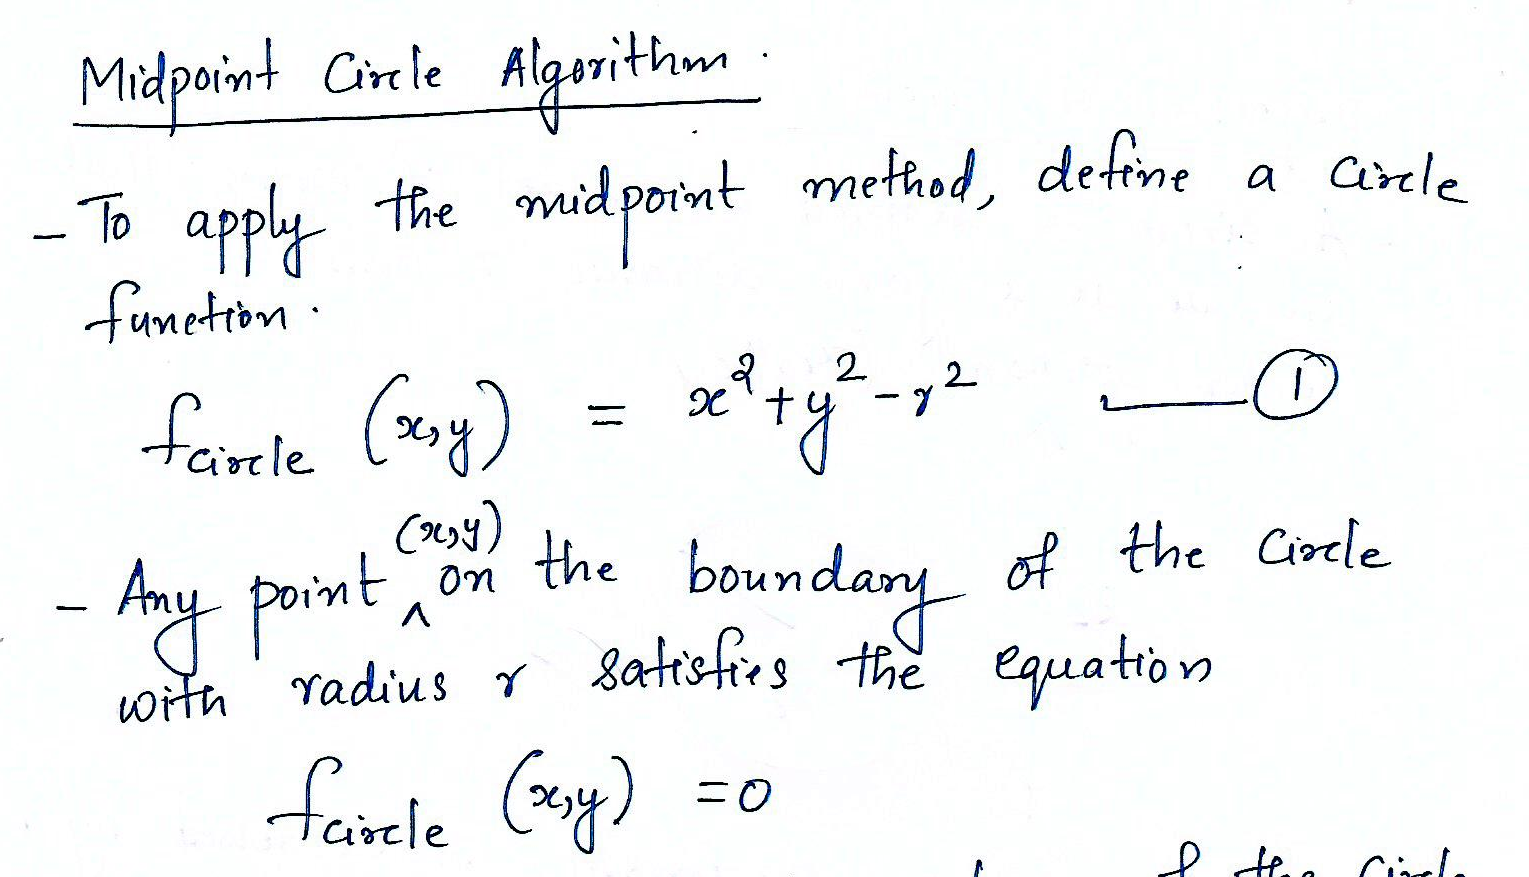 Midpoint Circle Algorithm.
- To apply the midpoint method, define a circle
function.
fcircle (x,y) = x²+y²-r² —①
(x,y)
- Any point ^ on the boundary of the circle
with radius r satisfies the equation
fcircle (x,y) =0
the circle